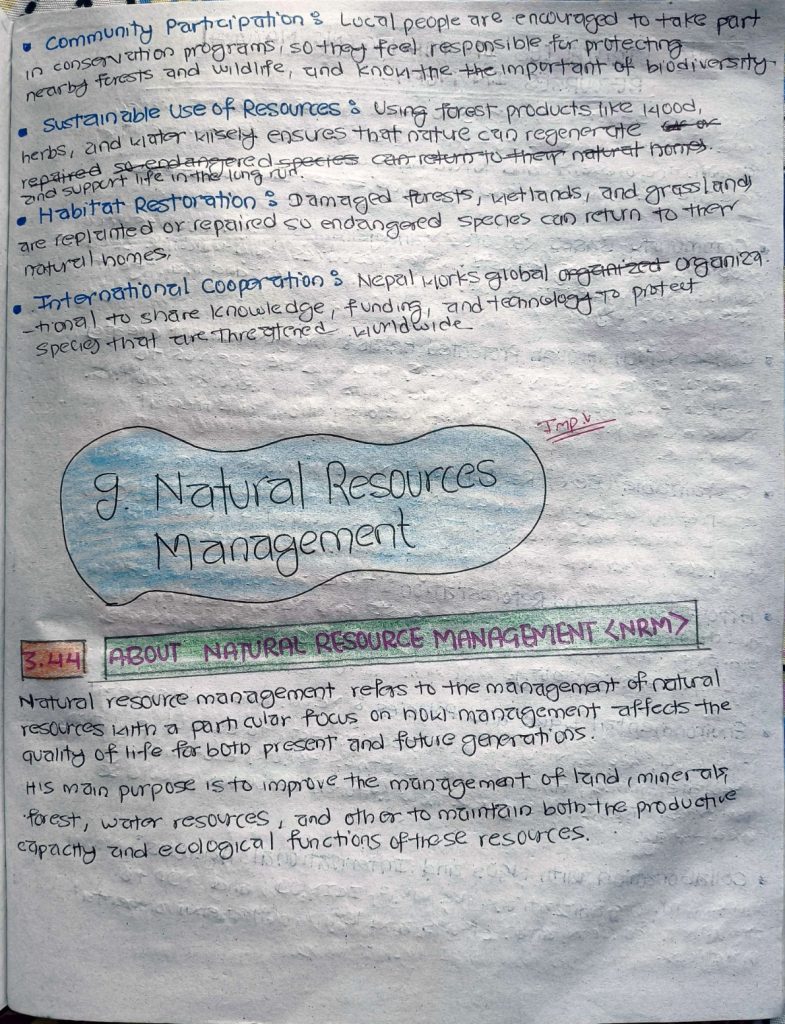 • Community Participation : Local people are encouraged to take part
in conservation programs, so they feel responsible for protecting
nearby forests and wildlife, and know the the important of biodiversity.
• Sustainable Use of Resources : Using forest products like wood,
herbs, and water wisely ensures that nature can regenerate
repaired so endangered species can return to their natural homes.
and support life in the lung run.
• Habitat Restoration : Damaged forests, wetlands, and grasslands
are replanted or repaired so endangered species can return to their
natural homes.
• International Cooperation : Nepal works global organized organiza-
-tional to share knowledge, funding, and technology to protect
species that are threatened worldwide
Imp.
g. Natural Resources
Management
3.44 ABOUT NATURAL RESOURCE MANAGEMENT <NRM>
Natural resource management refers to the management of natural
resources with a particular focus on how management affects the
quality of life for both present and future generations.
His main purpose is to improve the management of land, minerals,
forest, water resources, and other to maintain both the productive
capacity and ecological functions of these resources.